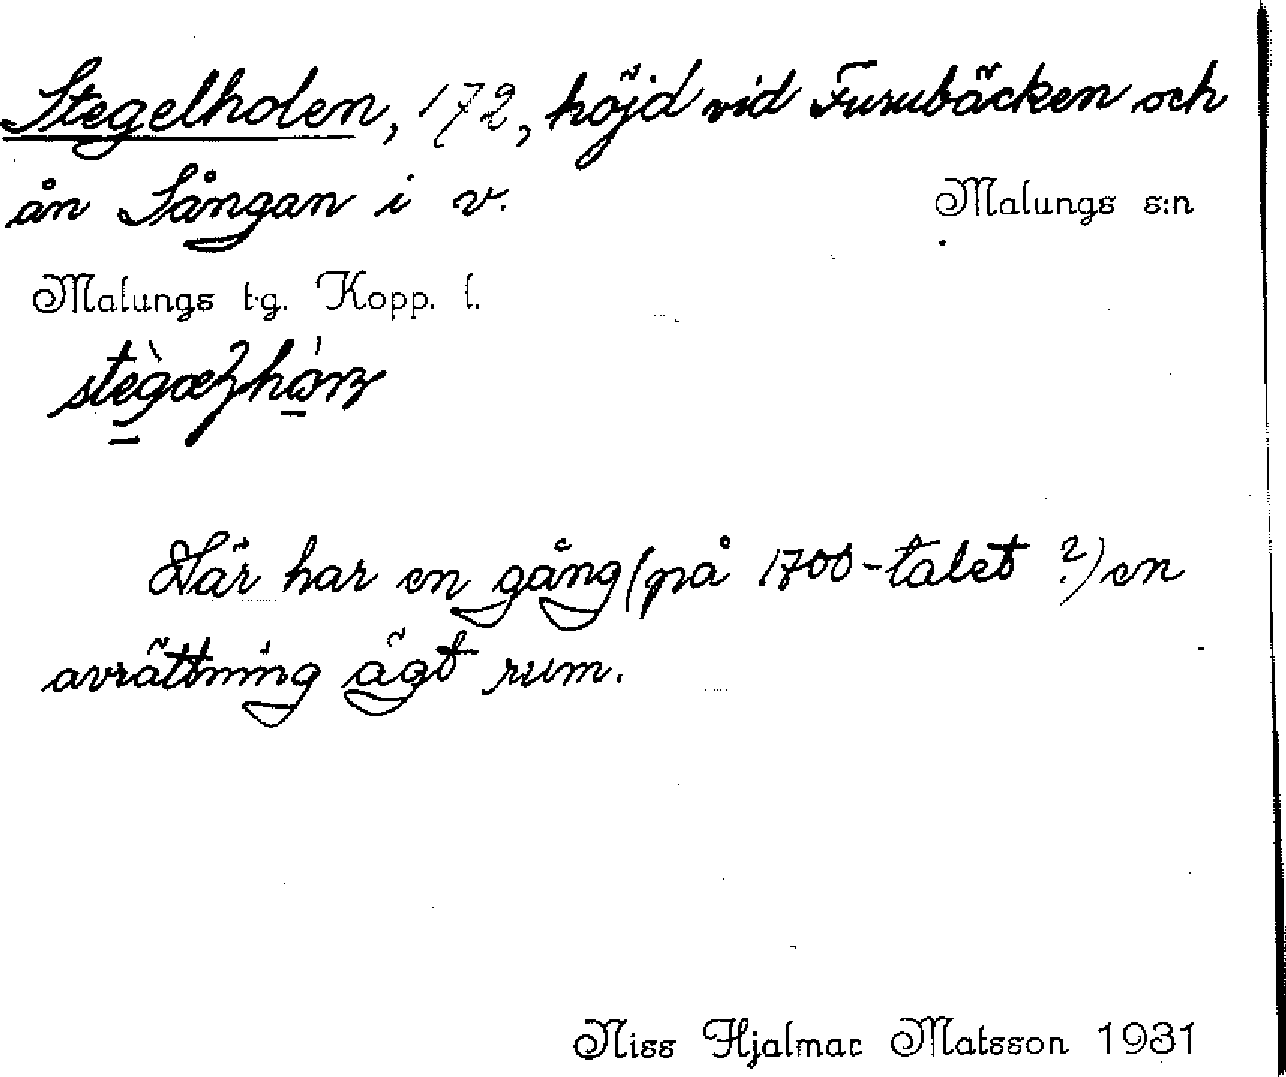 Stegelholen, 172, höjd vid Furubäcken och
ån Sångan i v. Malungs s:n
Malungs t.g. Kopp. l.
Här har en gång (på 1700-talet ?) en
avrättning ägt rum.
Niss Hjalmar Matsson 1931